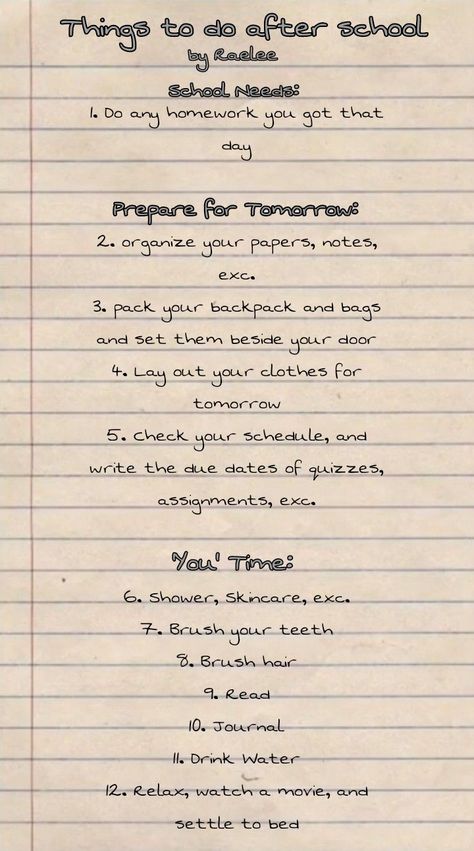 Things to do after school
by Raelee
School Needs:
1. Do any homework you got that
day
Prepare for Tomorrow:
2. organize your papers, notes,
exc.
3. pack your backpack and bags
and set them beside your door
4. Lay out your clothes for
tomorrow
5. Check your schedule, and
write the due dates of quizzes,
assignments, exc.
'You' Time:
6. Shower, Skincare, exc.
7. Brush your teeth
8. Brush hair
9. Read
10. Journal
11. Drink Water
12. Relax, watch a movie, and
settle to bed